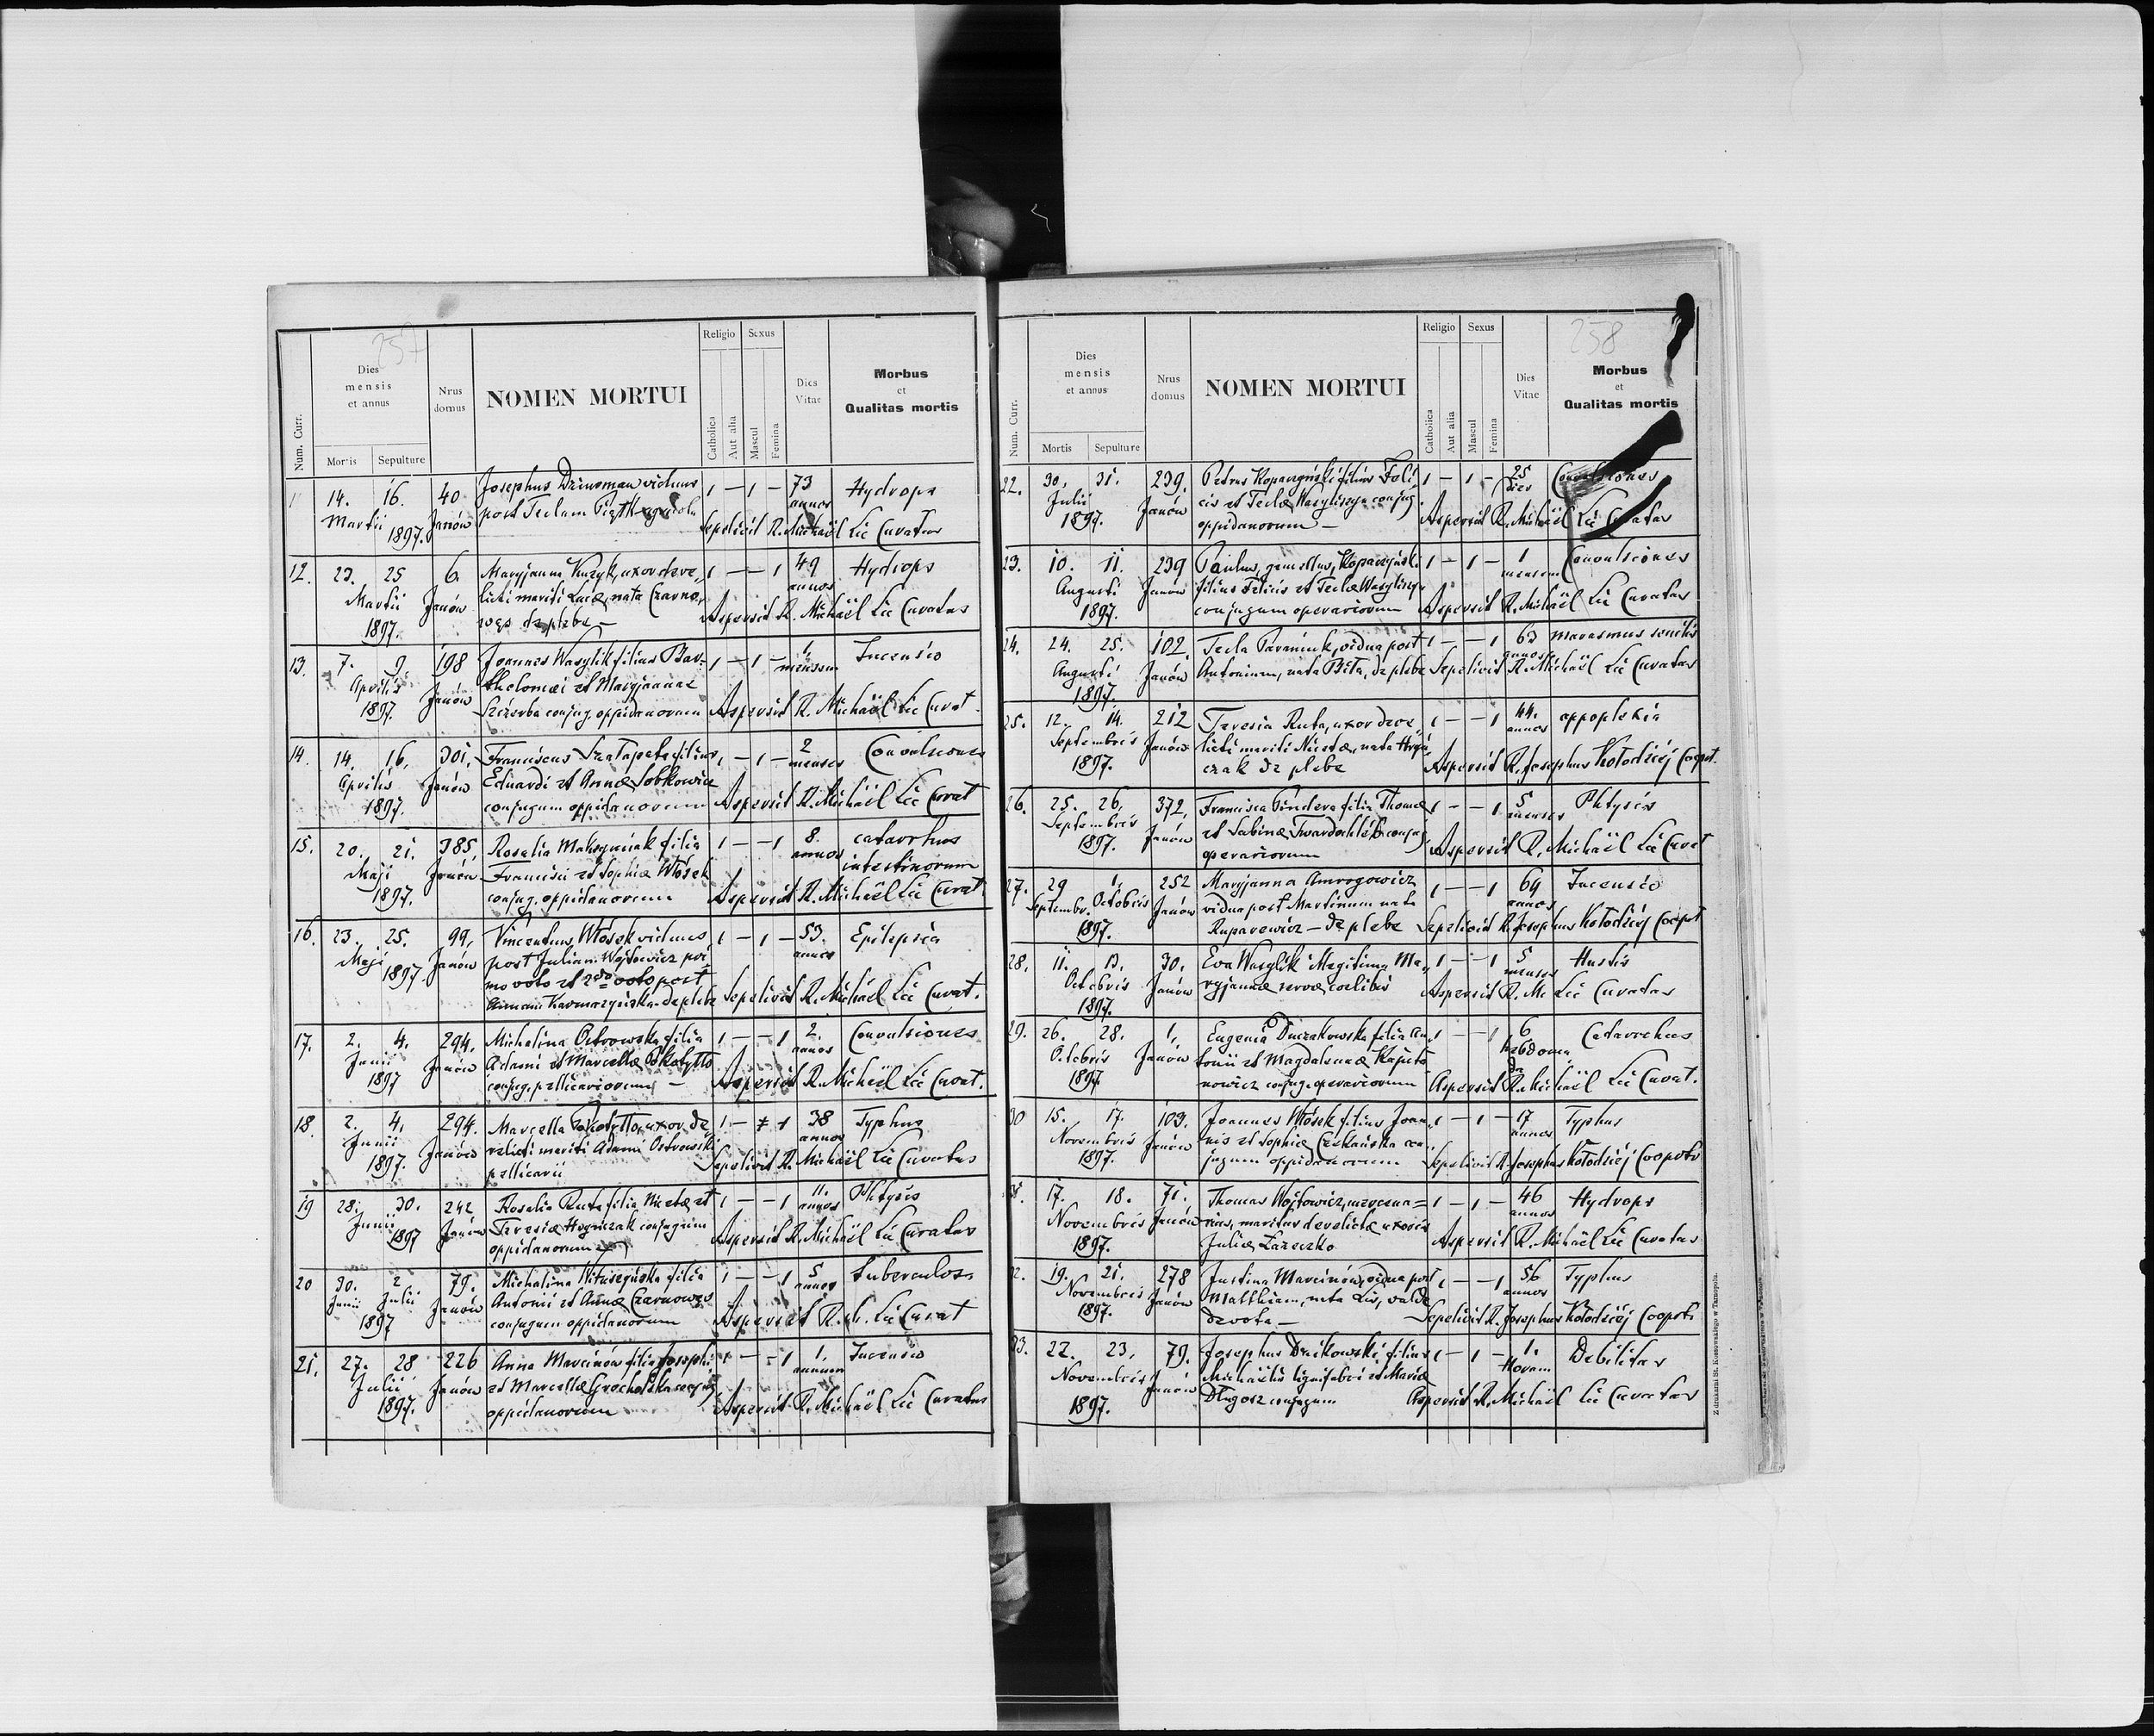 257
Num. Curr.
Dies
mensis
et annus
Mortis
Sepulture
Nrus
domus
NOMEN MORTUI
Religio
Sexus
Catholica
Aut alia
Mascul
Femina
Dies
Vitae
Morbus
et
Qualitas mortis
14. 16. 40 Josephus viduus 1 — 1 — 73 Hydrops
Martii Janów post Teclam annos
1897. Sepelivit R. Michaël Lic Curatus
12. 23. 25 6. Maryjanna Kuzyk, uxor dere, 1 — — 1 49 Hydrops
Martii Janów licti mariti nata annos
1897. de plebe — Aspersit R. Michaël Lic Curatus
13. 7. 9. 198 Joannes Wasylik filius Bar- 1 — 1 — 1. Incensio
Aprilis Janów tholomæi et Maryjannae mensem
1897. Szczerba conjug. oppidanorum Aspersit R. Michaël Lic Curat.
14. 14. 16. 301. Franciscus filius 1 — 1 — 2 Convulsiones
Aprilis Janów Eduardi et Annæ Sobkowicz menses
1897. conjugum oppidanorum Aspersit R. Michaël Lic Curat
15. 20. 21. 385 Rosalia Maksymiak filia 1 — — 1 8. catarrhus
Maji Janów Francisci et Sophiæ Włósek annos intestinorum
1897. conjug. oppidanorum Aspersit R. Michaël Lic Curat.
16. 23. 25. 99. Vincentius Włósek viduus 1 — 1 — 53. Epilepsia
Maji Janów post Julian. Wójtowicz pri, annos
1897. mo voto et 2do voto post
de plebe Sepelivit R. Michaël Lic Curat.
17. 2. 4. 294. Michalina Ostrowska filia 1 — — 1 2. Convulsiones
Junii Janów Adami et Marcellæ annos
1897 conjug. pellicariorum — Aspersit R. Michaël Lic Curat.
18. 2. 4. 294. Marcella uxor de 1 — 1 38 Typhus
Junii Janów relicti mariti Adami Ostrowski annos
1897. pellicarii Sepelivit R. Michaël Lic Curatus
19 28. 30. 242 Rosalia Ruta filia Nicetæ et 1 — — 1 11. Phtysis
Junii Janów Teresiæ conjugum annos
1897 oppidanorum Aspersit R. Michaël Lic Curatus
20 30. 2 79. Michalina filia 1 — — 1 5 tuberculosis
Junii Julii Janów Antonii et Annæ annos
1897 conjugum oppidanorum Aspersit R. M. Lic Curat
21. 27. 28 226 Anna Marcinów filia Josephi 1 — — 1 1. Incensio
Julii Janów et Marcellæ Grocholska conjug annum
1897. oppidanorum Aspersit R. Michaël Lic Curatus
258
Num. Curr.
Dies
mensis
et annus
Mortis
Sepulture
Nrus
domus
NOMEN MORTUI
Religio
Sexus
Catholica
Aut alia
Mascul
Femina
Dies
Vitae
Morbus
et
Qualitas mortis
22. 30. 31. 239. Petrus Kopaczyński filius Feli 1 — 1 — 25 Convulsiones
Julii Janów cis et Teclæ Wasyliszyn conjug. dies
1897. oppidanorum — Aspersit R. Michaël Lic Curatus
23. 10. 11. 239 Paulus, gemellus, Kopaczyński 1 — 1 — 1 Convulsiones
Augusti Janów filius Felicis et Teclæ Wasyliszyn mensem
1897. conjugum operariorum Aspersit R. Michaël Lic Curatus
24. 24. 25. 102. Tecla Paraniuk, vidua post 1 — — 1 63 marasmus senilis
Augusti Janów Antonium, nata de plebe annos Sepelivit R. Michaël Lic Curatus
1897.
25. 12. 14. 212 Teresia Ruta, uxor dere, 1 — — 1 44. appoplexia
Septembris Janów licti mariti Nicetæ, nata annos
1897. czak de plebe Aspersit R. Josephus Kołodziéj Coopt.
26. 25. 26. 372. Francisca Pindera filia Thomæ 1 — — 1 5 Phtysis
Septembris Janów et Sabinæ conjug menses
1897. operariorum Aspersit R. Michaël Lic Curat
27. 29 1. 252 Maryjanna Amrogowicz 1 — — 1 64 Incensio
Septembr. Octobris Janów vidua post Martinum nata annos
1897. Ruparewicz — de plebe Sepelivit R. Josephus Kołodziéj Coopt
28. 11. 13. 30. Eva Wasylik illegitima Ma, 1 — — 1 5 Hustis
Octobris Janów ryjannæ servæ coelibis menses
1897. Aspersit R. M. Lic Curatus
29. 26. 28. 1. Eugenia filia An 1 — — 1 6 Catarrhus
Octobris Janów tonii et Magdalenae Kapito hebdoma
1897. nowicz conjug. operariorum da Aspersit R. Michaël Lic Curat.
30 15. 17. 103. Joannes Włósek filius Joan 1 — 1 — 17 Typhus
Novembris Janów nis et Sophiæ Czekańska con annos
1897. jugum oppidanorum Sepelivit R. Josephus Kołodziéj Coopt
31. 17. 18. 71. Thomas Wójtowicz, mercena= 1 — 1 — 46 Hydrops
Novembris Janów rius, maritus derelictæ uxoris annos
1897. Juliæ Aspersit R. Michaël Lic Curatus
32. 19. 21. 278 Justina Marcinów, vidua post 1 — — 1 56 Typhus
Novembris Janów Matthiam, nata Lis, valde annos
1897. devota — Sepelivit R. Josephus Kołodziéj Coopt.
33. 22. 23. 79. Josephus filius 1 — 1 — 1. Debilitas
Novembris Janów Michaëlis lignifabri et Mariæ Horam
1897. Długosz conjugum Aspersit R. Michaël Lic Curatus
Z drukarni St. Kossowskiego w Tarnopolu.